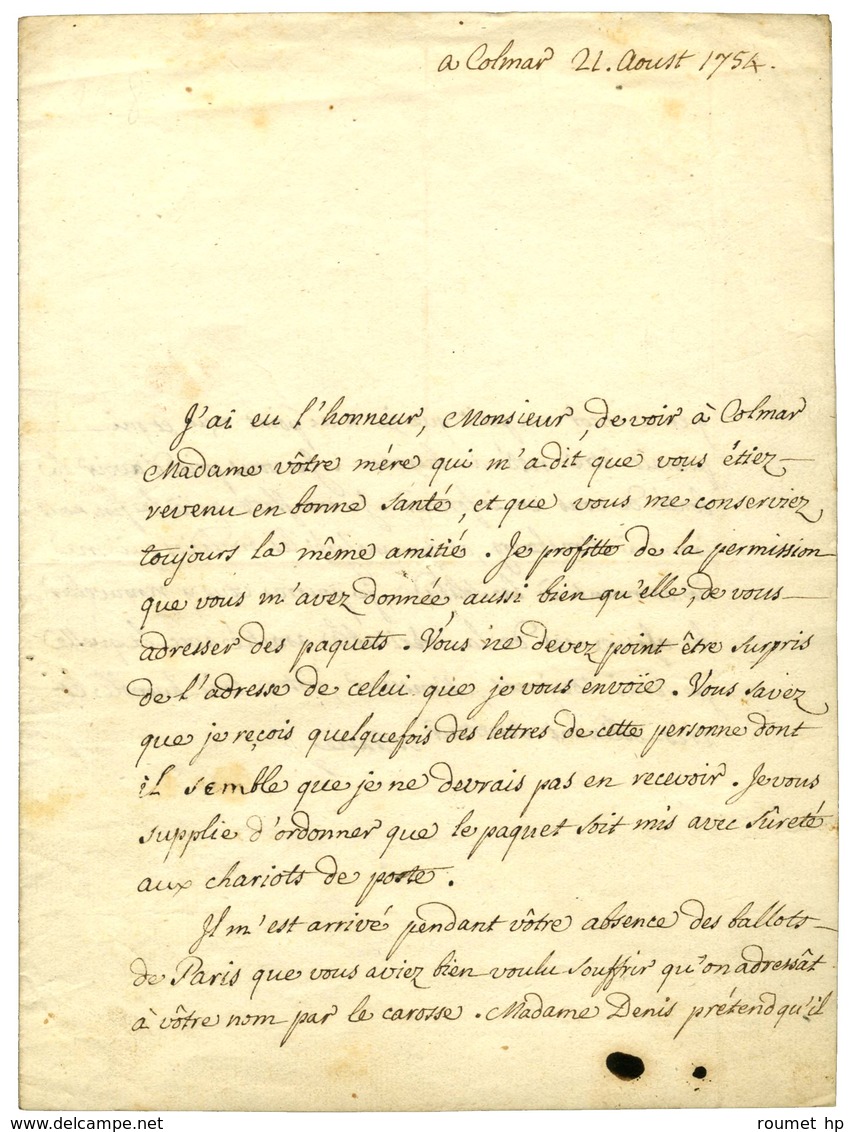 a Colmar 21. Aoust 1754.
J'ai eu l'honneur, Monsieur, de voir à Colmar
Madame vôtre mére qui m'a dit que vous étiez
revenu en bonne santé, et que vous me conserviez
toujours la même amitié. Je profitte de la permission
que vous m'avez donnée, aussi bien qu'elle, de vous
adresser des paquets. Vous ne devez point être surpris
de l'adresse de celui que je vous envoie. Vous savez
que je reçois quelquefois des lettres de cette personne dont
il semble que je ne devrais pas en recevoir. Je vous
supplie d'ordonner que le paquet soit mis avec sûreté
aux chariots de poste.
Il m'est arrivé pendant vôtre absence des ballots
de Paris que vous aviez bien voulu souffrir qu'on adressât
à vôtre nom par le carosse. Madame Denis prétend qu'il
www.delcampe.net
roumet hp